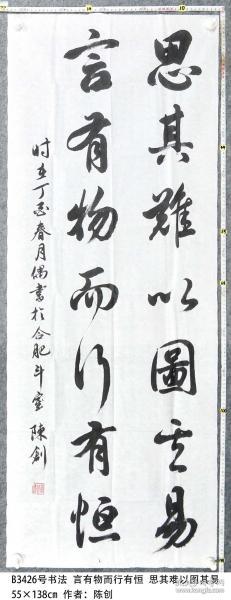 思其難以圖其易
言有物而行有恒
时在丁酉春月偶書於合肥斗室 陳創
B3426号书法 言有物而行有恒 思其难以图其易
55×138cm 作者：陈创